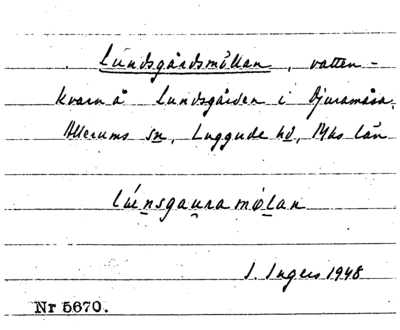 Lundsgårdsmöllan, vatten-
kvarn å Lundsgården i Djuramåsa,
Allerums sn, Luggude hd, Mhs län
lúnsgaura mølan
I. Ingers 1948
Nr 5670.